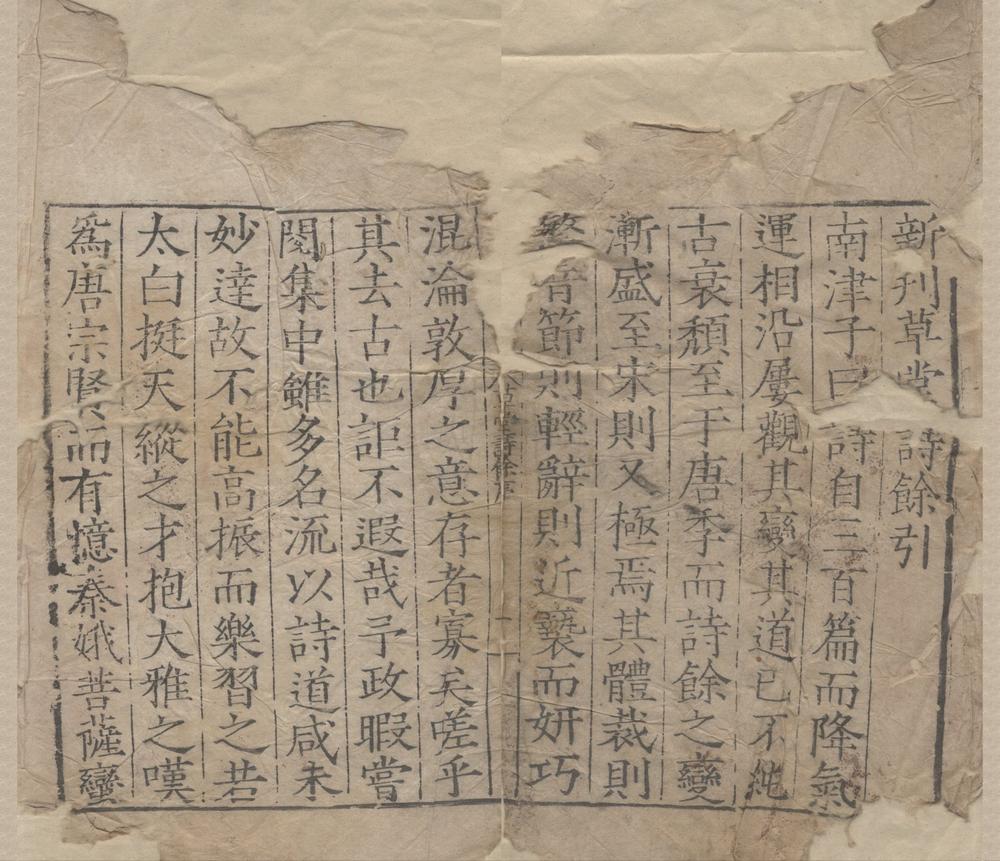 新刋草堂詩餘引
南津子曰詩自三百篇而降氣
運相沿屢觀其變其道已不純
古衰頹至于唐季而詩餘之變
漸盛至宋則又極焉其體裁則
繁音節則輕辭則近䙝而妍巧
混淪敦厚之意存者寡矣嗟乎
其去古也詎不遐哉予政暇嘗
閱集中雖多名流以詩道咸未
妙達故不能高振而樂習之若
太白挺天縱之才抱大雅之嘆
爲唐宗賢而有憶秦娥菩薩蠻